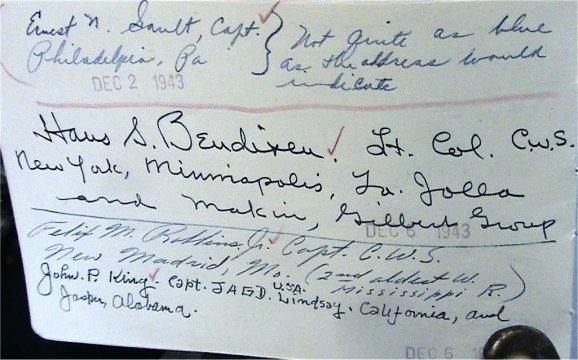 Ernest N. Gault, Capt. } Not quite as blue
Philadelpia, Pa as the address would
DEC 2 1943 indicate
Hans S. Bendixen. Lt. Col. C.W.S.
New York, Minniapolis, La Jolla
and Makin, Gilbert Group
DEC 6 1943
Felix M. Robbins Jr. Capt. C.W.S.
New Madrid, Mo. (2nd oldest W. Mississippi R.)
John P. King. Capt. JAGD. U.S.A. Lindsay, California, and
Jasper, Alabama.
DEC 6